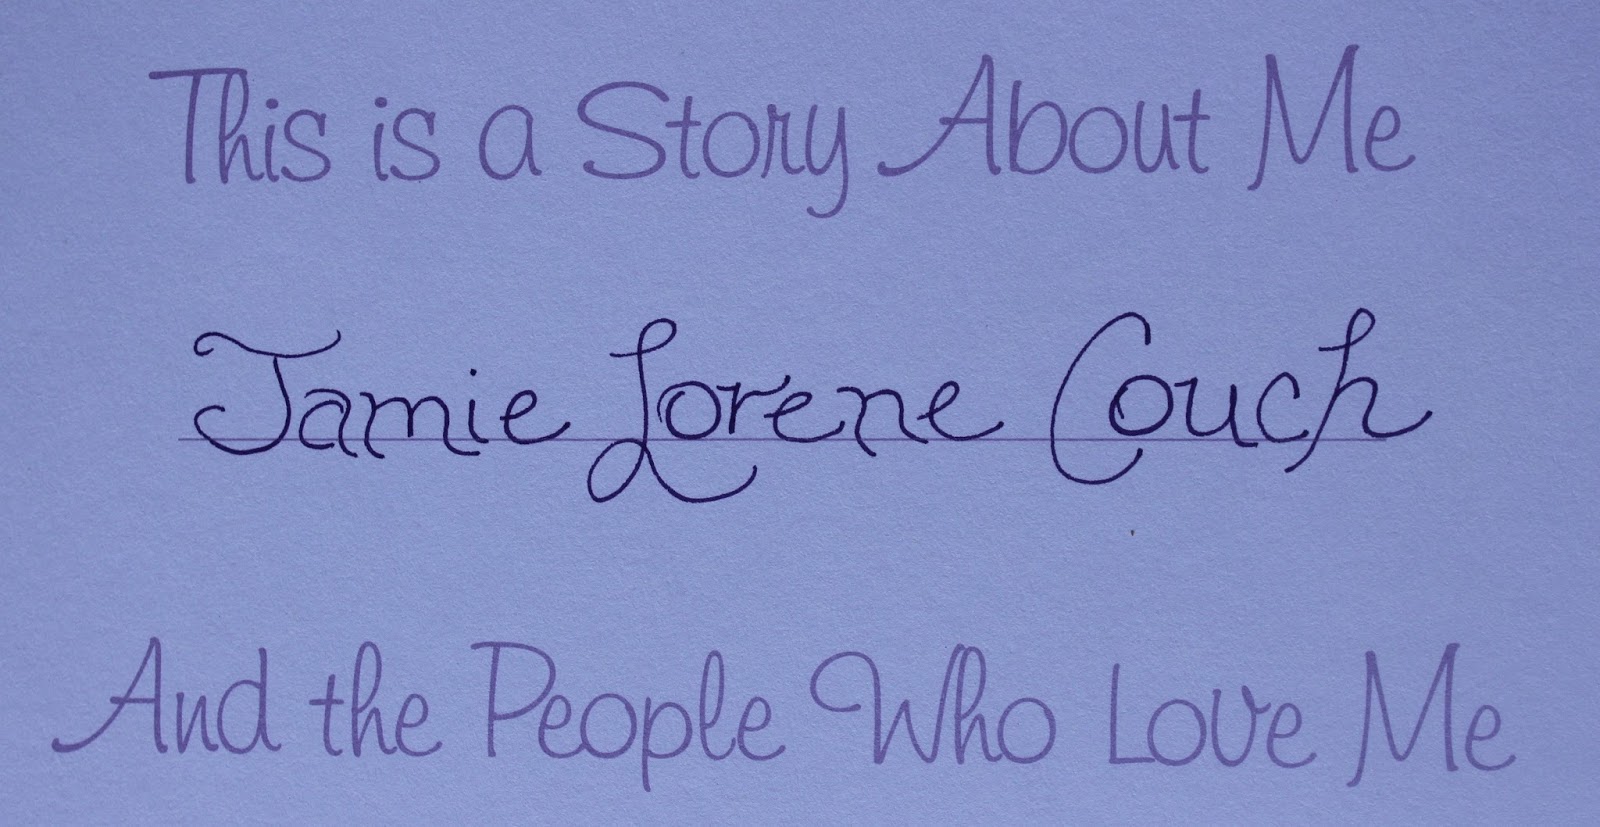 This is a Story About Me
Jamie Lorene Couch
And the People Who Love Me